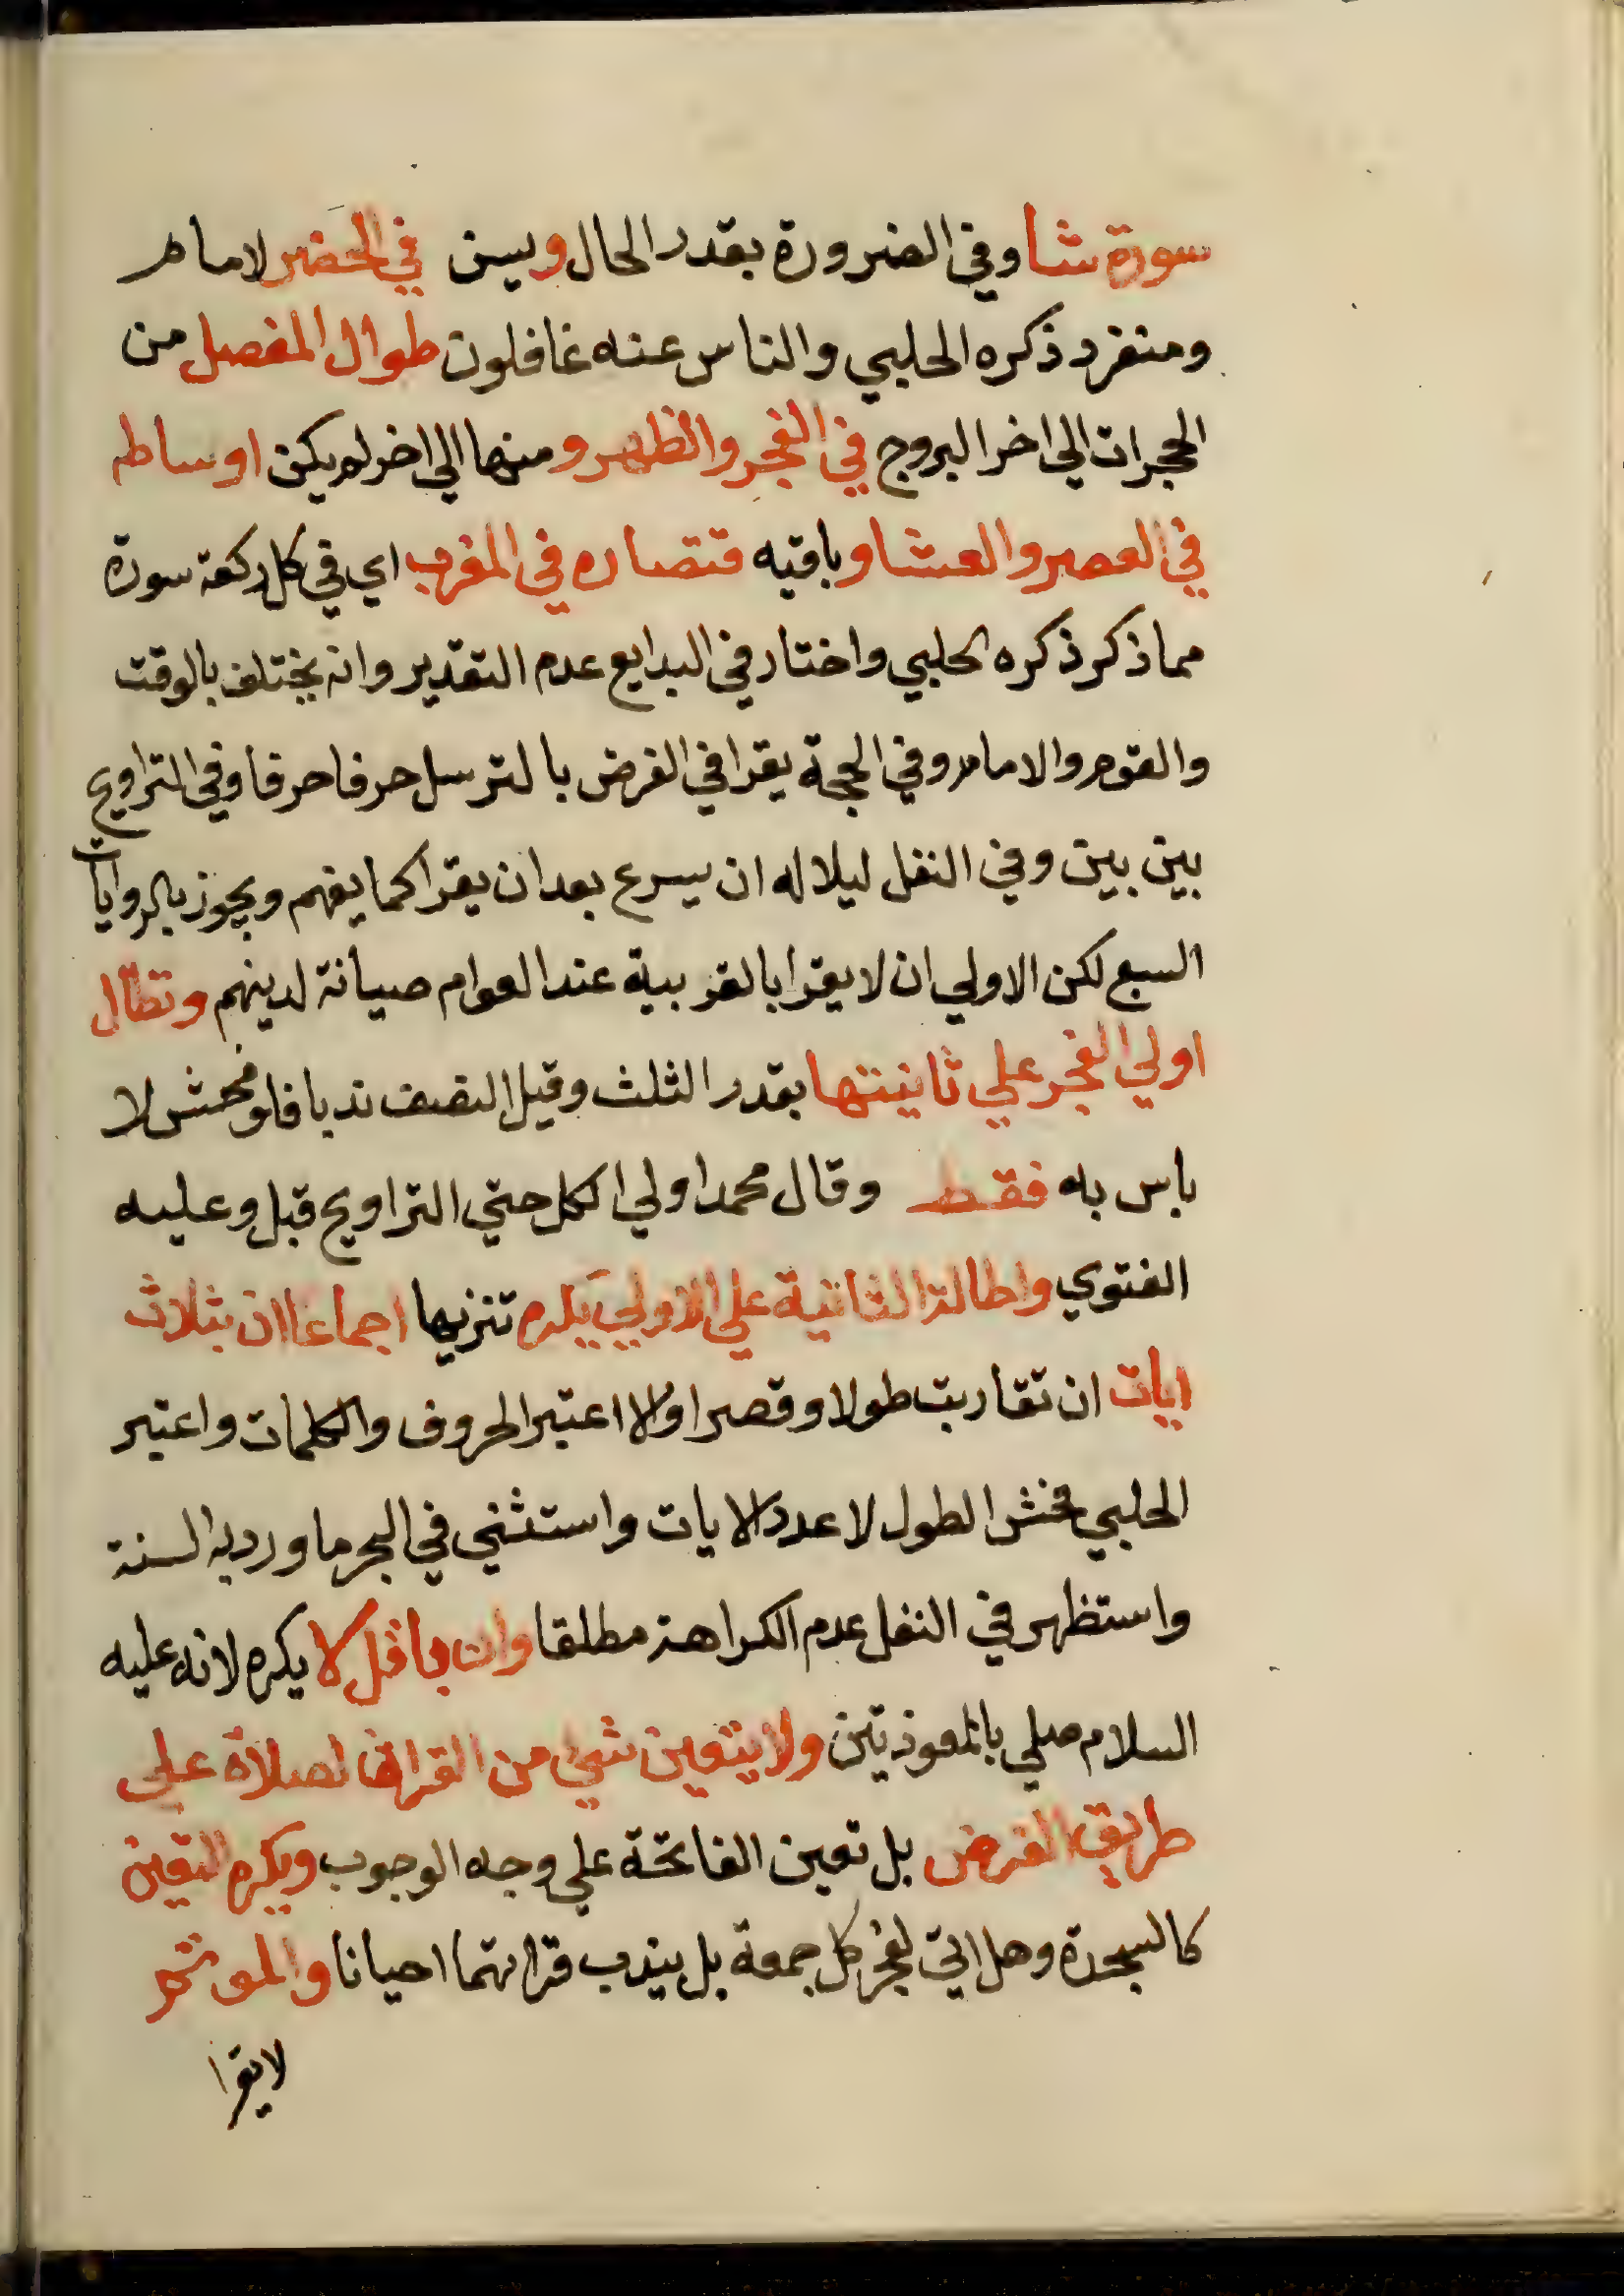 سورة شا وفي الضرورة بقدر الحال ويسن في الحضر لامام
ومنفرد ذكره الحلبي والناس عنه غافلون طوال المفصل من
الحجرات الى اخر البروج في الفجر والظهر ومنها الي اخر لم يكن اوساطه
في العصر والعشا وباقيه قتصاره في المغرب اي في كل ركعة سورة
مما ذكر ذكره الحلبي واختار في البدايع عدم التقدير وانه يختلف بالوقت
والقوم والامام وفي الحجة يقرا في الفرض بالترسل حرفا حرفا وفي التراويح
بين بين وفي النفل ليلا له ان يسرع بعد ان يقرا كما يفهم ويجوز بالروايات
السبع لكن الاولي ان لا يقرا بالغريبة عند العوام صيانة لدينهم وتطال
اولي الفجر علي ثانيتها بقدر الثلث وقيل النصف ندبا فلو فحش لا
باس به فقط وقال محمد اولي الكل حتي التراويح قيل وعليه
الفتوي واطالة الثانية علي الاولي يكره تنزيها اجماعا ان بثلاث
ايات ان تقاربت طولا وقصرا والا اعتبر الحروف والكلمات واعتبر
الحلبي فحش الطول لا عدد الايات واستثني في البحر ما ورد به السنة
واستظهر في النفل عدم الكراهة مطلقا وان باقل لا يكره لانه عليه
السلام صلي بالمعوذتين ولا يتعين شي من القران لصلاة علي
طريق الفرض بل تعين الفاتحة علي وجه الوجوب ويكره التعين
كالسجدة وهل اتي لفجر كل جمعة بل يندب قراتهما احيانا والموتم
لا يقرا